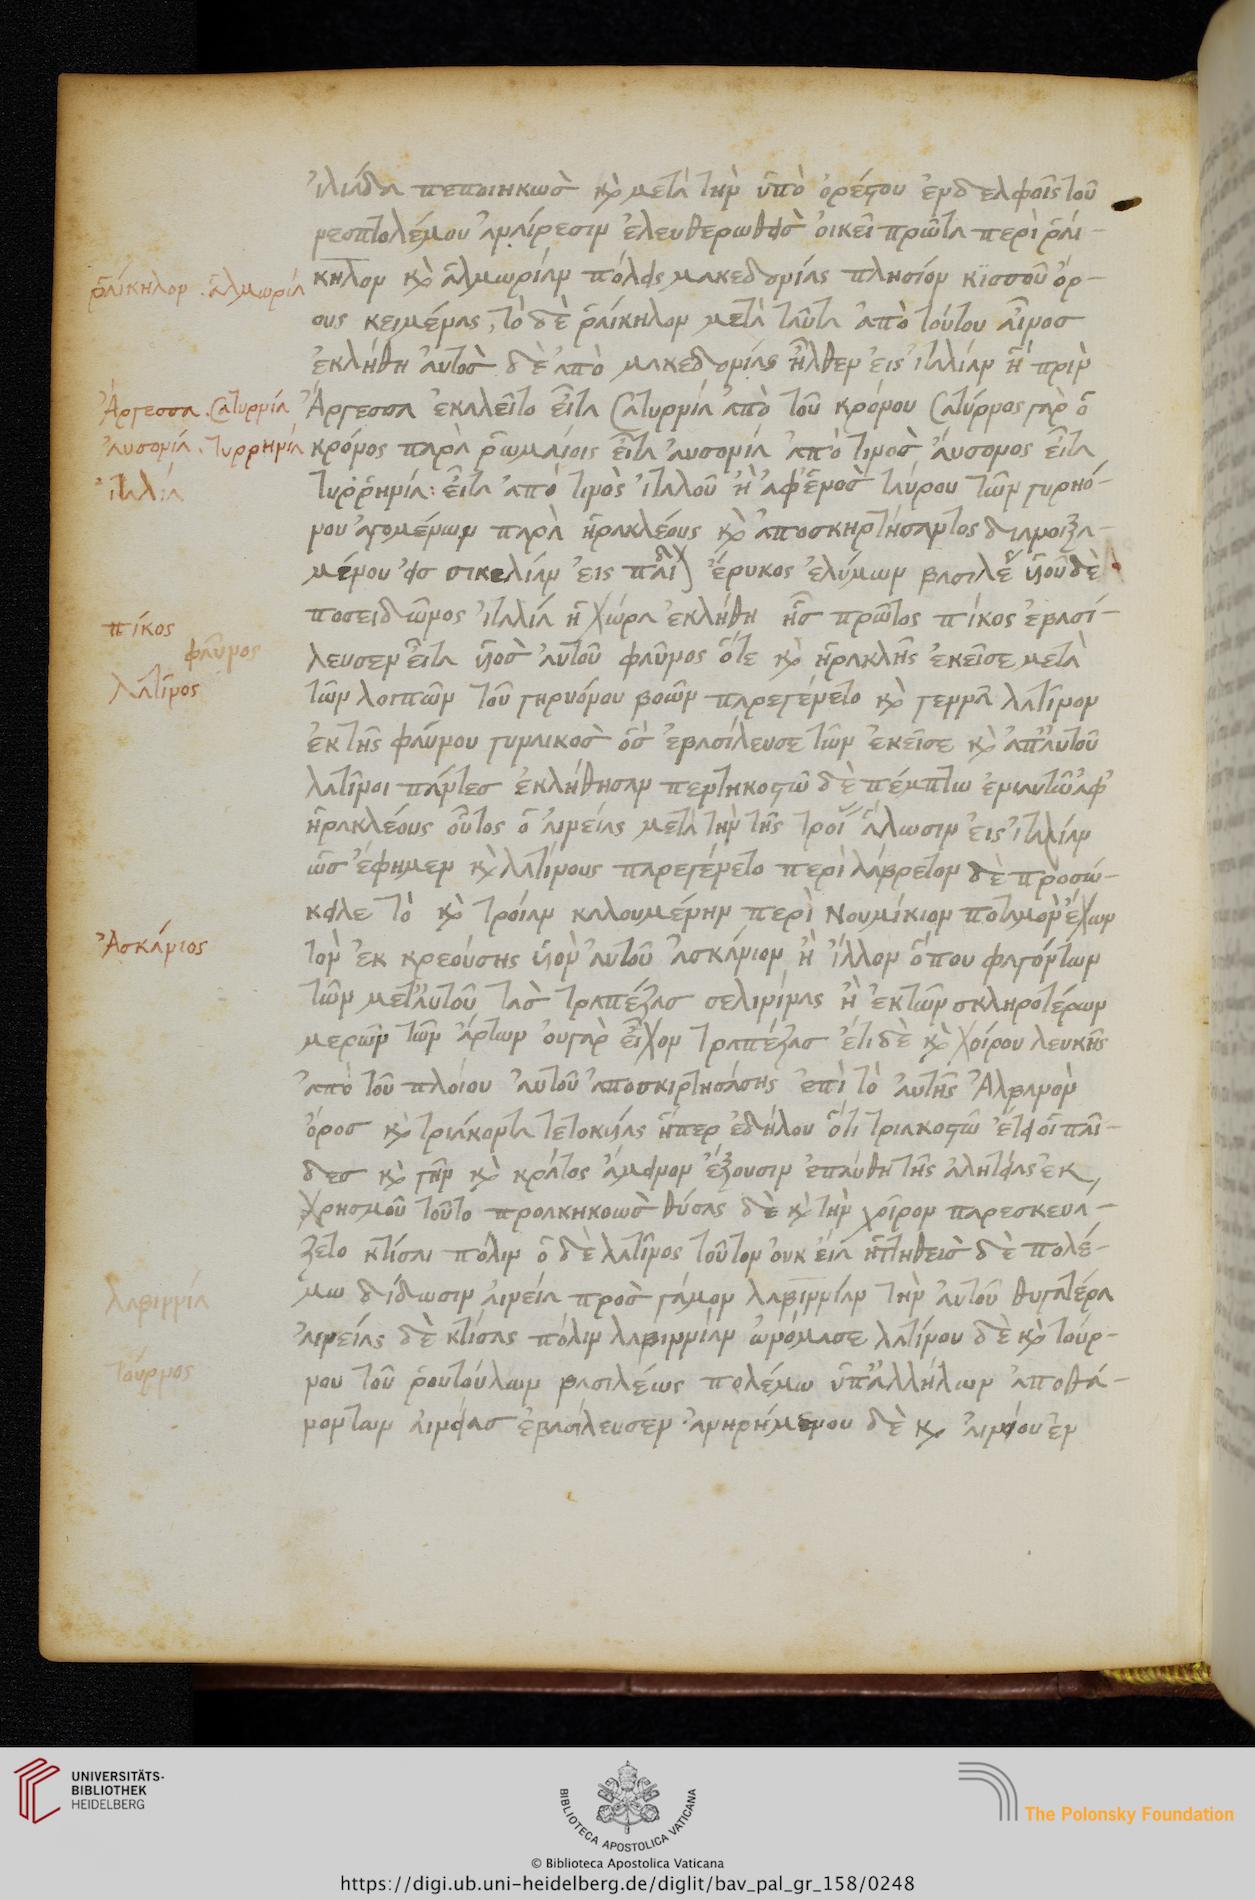 ἰλιάδα πεποιηκὼς καὶ μετὰ τὴν ὑπὸ ὀρέστου ἐν δελφοῖς τοῦ
νεοπτολέμου ἀναίρεσιν ἐλευθερωθεὶς οἰκεῖ πρῶτα περὶ ῥαί-
ῥαίκηλον . ἀλμωρία
κηλον καὶ ἀλμωρίαν πόλεις μακεδονίας πλησίον κισσοῦ ὄρ-
ους κειμένας, τὸ δὲ ῥαίκηλον μετὰ ταῦτα ἀπὸ τούτου αἶνος
ἐκλήθη αὐτὸς δὲ ἀπὸ μακεδονίας ἦλθεν εἰς ἰταλίαν ἣ πρὶν
Ἄργεσσα . Σατυρνία
Ἄργεσσα ἐκαλεῖτο εἶτα Σατυρνία ἀπὸ τοῦ κρόνου Σατύρνος γὰρ ὁ
αὐσονία . τυρρηνία
κρόνος παρὰ ῥωμαίοις εἶτα αὐσονία ἀπὸ τινὸς αὔσονος εἶτα
ἰταλία
τυῤῥηνία: εἶτα ἀπὸ τινὸς ἰταλοῦ ἢ ἀφ' ἑνὸς ταύρου τῶν γυρηό-
νου ἀγομένων παρὰ ἡρακλέους καὶ ἀποσκηρτήσαντος διανοιξα-
μένου εἰς σικελίαν εἰς ἔρυκος ἐλύμων βασιλέως υἱοῦ δὲ
ποσειδῶνος ἰταλία ἡ χώρα ἐκλήθη ἧς πρῶτος πίκος ἐβασί-
πίκος
φαῦνος
λευσεν εἶτα υἱὸς αὐτοῦ φαῦνος ὅτε καὶ ἡρακλῆς ἐκεῖσε μετὰ
λατῖνος
τῶν λοιπῶν τοῦ γηρυόνου βοῶν παρεγένετο καὶ γεννᾶ λατῖνον
ἐκ τῆς φαύνου γυναικὸς ὃς ἐβασίλευσε τῶν ἐκεῖσε καὶ ἀπ' αὐτοῦ
λατῖνοι πάντες ἐκλήθησαν πεντηκοστῶ δὲ πέμπτω ἐνιαυτῶ ἀφ'
ἡρακλέους οὗτος ὁ αἰνείας μετὰ τὴν τῆς τροίας ἅλωσιν εἰς ἰταλίαν
ὡς ἔφημεν καὶ λατίνους παρεγένετο περὶ λάβρεντον δὲ προσώ-
κειλε τὸ καὶ τροίαν καλουμένην περὶ Νουμίκιον ποταμὸν ἔχων
Ἀσκάνιος
τὸν ἐκ κρεούσης υἱὸν αὐτοῦ ἀσκάνιον ἢ ἴλλον ὅπου φαγόντων
τῶν μετ' αὐτοῦ τὰς τραπέζας σελινίνας ἢ ἐκ τῶν σκληροτέρων
μερῶν τῶν ἄρτων οὐ γὰρ εἶχον τραπέζας ἔτι δὲ καὶ χοίρου λευκῆς
ἀπὸ τοῦ πλοίου αὐτοῦ ἀποσκιρτησάσης ἐπὶ τὸ αὐτῆς Ἀλβανὸν
ὄρος καὶ τριάκοντα τετοκυίας ἥπερ ἐδήλου ὅτι τριακοστῶ ἔτει οἱ παῖ-
δες καὶ γῆν καὶ κράτος ἄμεινον ἕξουσιν ἐπαύθη τῆς ἀλητείας ἐκ
χρησμοῦ τοῦτο προακηκοὼς θύσας δὲ καὶ τὴν χοῖρον παρεσκευά-
ζετο κτίσαι πόλιν ὁ δὲ λατῖνος τοῦτον οὐκ εἴα ἡττηθεὶς δὲ πολέ-
λαβιννία
μω δίδωσιν αἰνεία πρὸς γάμον λαβιννίαν τὴν αὐτοῦ θυγατέρα
αἰνείας δὲ κτίσας πόλιν λαβιννίαν ὠνόμασε λατίνου δὲ καὶ τούρ-
τούρνος
νου τοῦ ῥουτούλων βασιλέως πολέμω ὑπ' ἀλλήλων ἀποθα-
νόντων αἰνείας ἐβασίλευσεν ἀνηρημένου δὲ καὶ αἰνείου ἐν
UNIVERSITÄTS-
BIBLIOTHEK
HEIDELBERG
BIBLIOTECA APOSTOLICA VATICANA
The Polonsky Foundation
© Biblioteca Apostolica Vaticana
https://digi.ub.uni-heidelberg.de/diglit/bav_pal_gr_158/0248